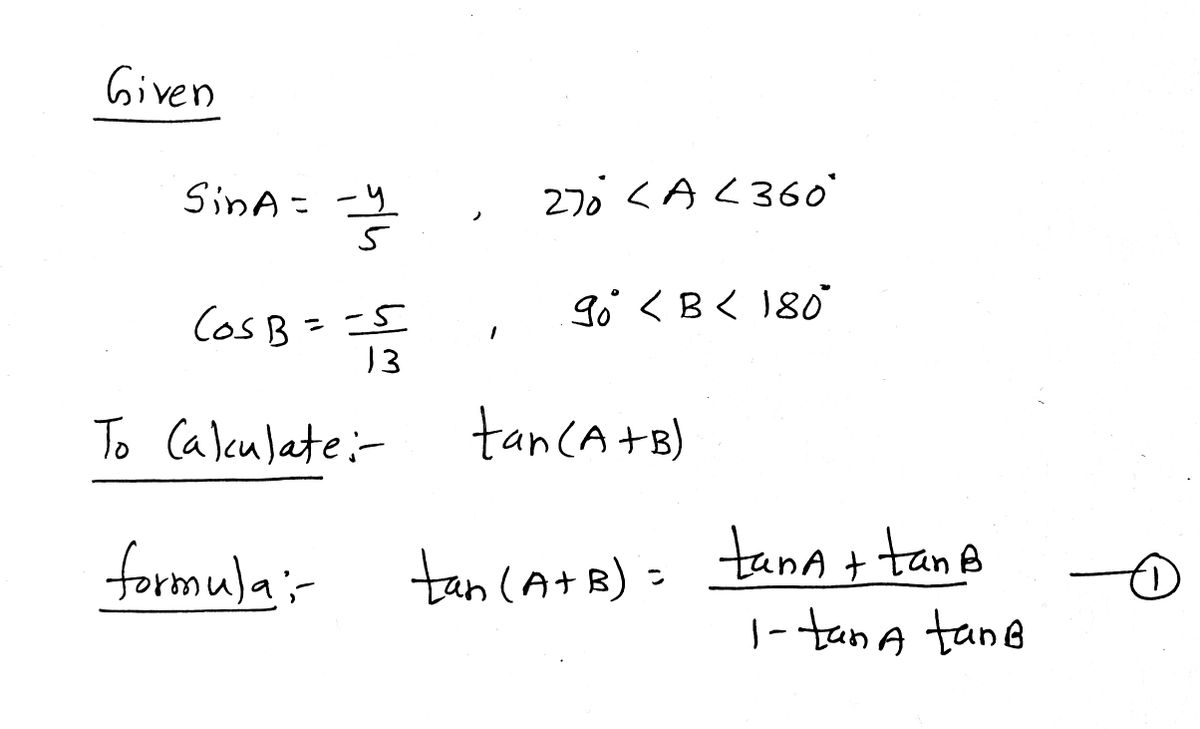 Given
SinA = -4/5 , 270° < A < 360°
Cos B = -5/13 , 90° < B < 180°
To Calculate:- tan(A+B)
formula:- tan(A+B) = (tanA + tanB)/(1 - tanA tanB) —①